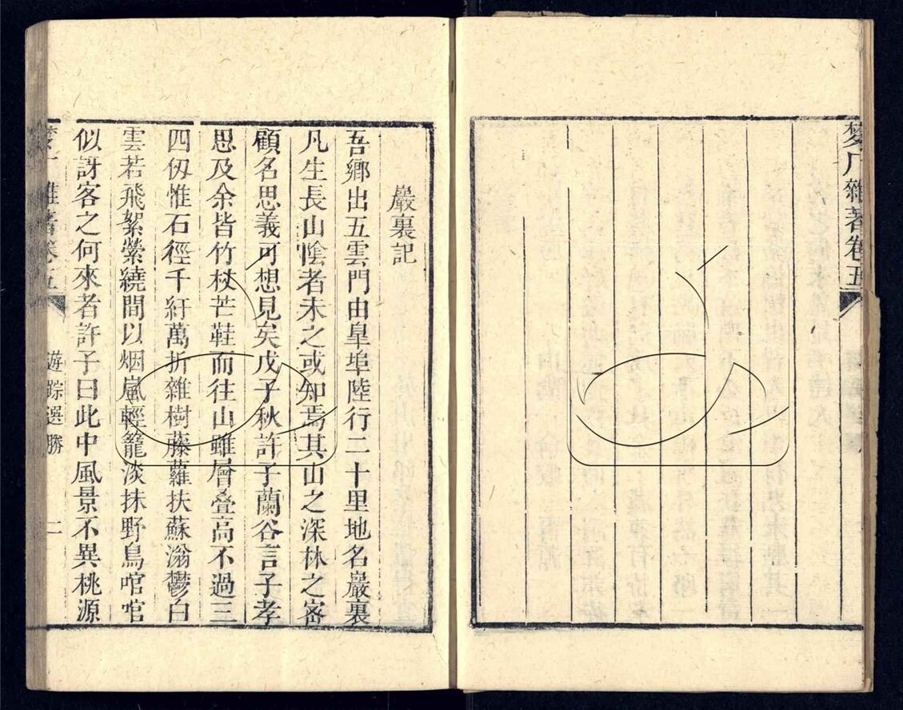 夢厂雜著卷五
巖裏記
吾鄉出五雲門由皐埠陸行二十里地名巖裏
凡生長山陰者未之或知焉其山之深林之密
顧名思義可想見矣戊子秋許子蘭谷言子孝
思及余皆竹杖芒鞋而往山雖層疊高不過三
四仭惟石徑千紆萬折雜樹藤蘿扶蘇滃鬱白
雲若飛絮縈繞間以烟嵐輕籠淡抹野鳥喧喧
似訝客之何來者許子曰此中風景不異桃源
夢厂雜著卷五 遊踪選勝 二